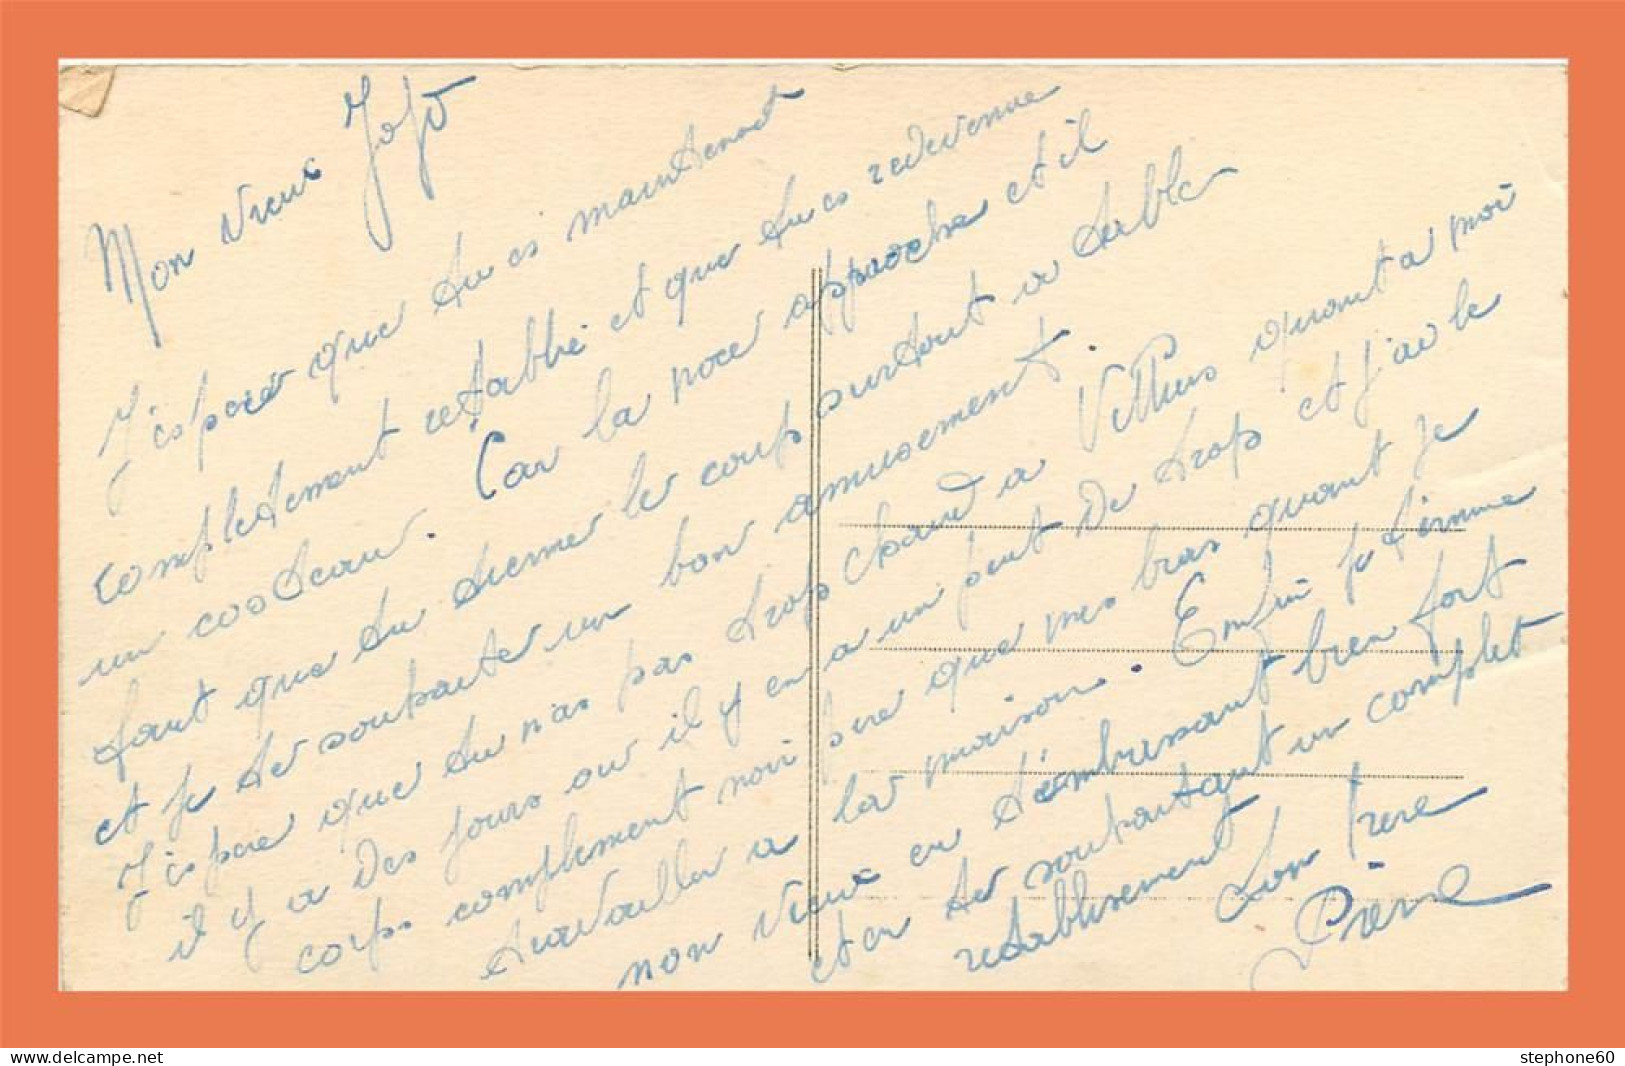 Mon vieux Jojo
J'espère que tu es maintenant
complètement retablie et que tu es redevenue
un costeau. Car la noce approche et il
faut que tu tienne le coup surtout a table
et je te souhaite un bon amusement.
J'espère que tu n'as pas trop chaud a quant a moi
il y a des jours ou il y en a un peut de trop et j'ai le
corps complement noir que mes bras quant je
travaille a la maison. Enfin je termine
mon vieux en t'embrassant bien fort
et en te souhaitant un complet
retablisement ton frère
Pierre
stephone60